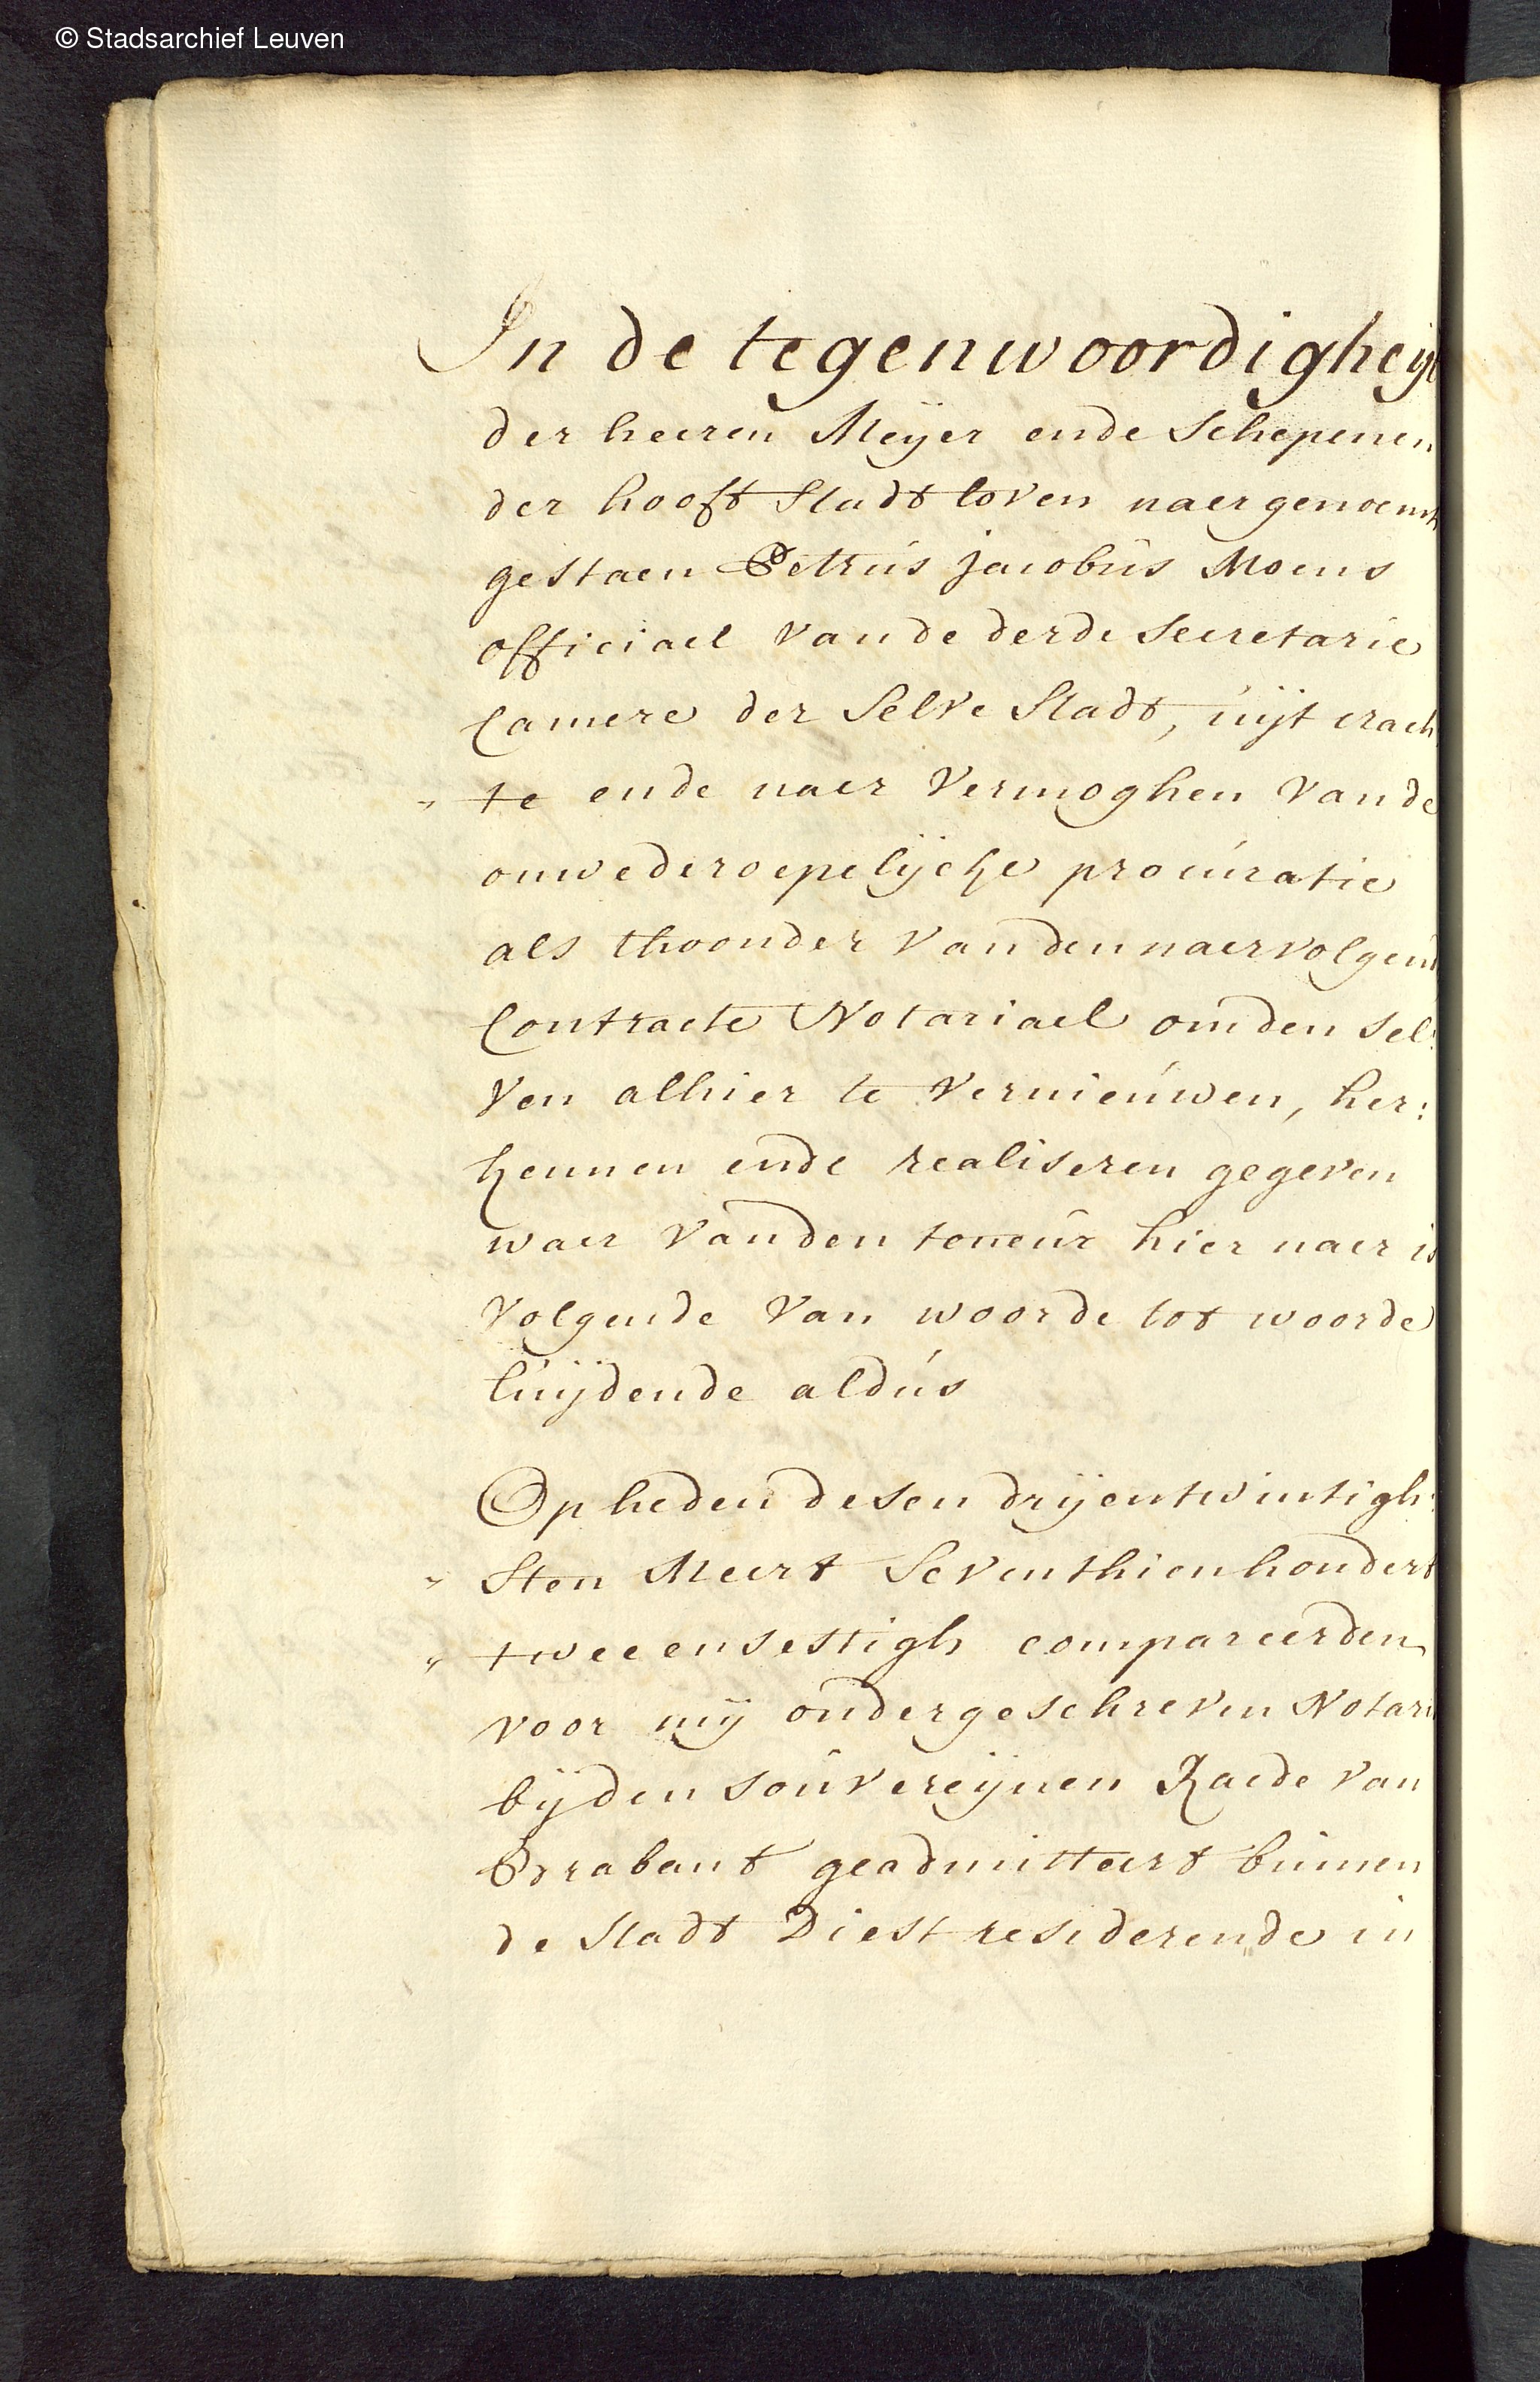 © Stadsarchief Leuven
In de tegenwoordigheijt
der heeren Meijer ende Schepenen
der hooft Stadt loven naergenoemt
gestaen Petrus Jacobus Moens
officiael van de derde secretarie
Camere der selve Stadt, uijt crach
„ te ende naer vermoghen van de
onwederoepelijcke procuratie
als thoonder van den naervolgend
Contracte Notariael om den sel:
ven alhier te vernieuwen, her:
kennen ende realiseren gegeven
waer van den teneur hier naer is
volgende van woorde tot woorde
luijdende aldus
Op heden desen drijentwintigh:
„ sten Meert seventhienhondert
„ tweeensestigh compareerden
voor mij ondergeschreven Notaris
bij den souvereijnen Raede van
Brabant geadmitteert binnen
de Stadt Diest residerende in